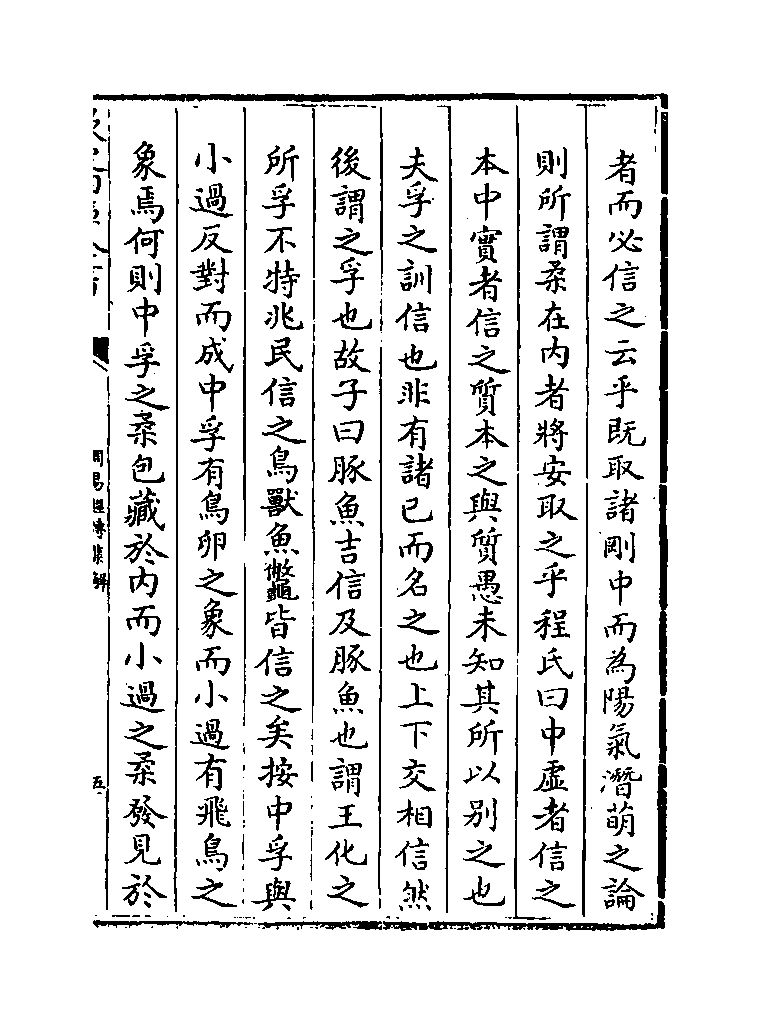 者而必信之云乎既取諸剛中而為陽氣潛萌之論
則所謂柔在内者將安取之乎程氏曰中虛者信之
本中實者信之質本之與質愚未知其所以别之也
夫孚之訓信也非有諸己而名之也上下交相信然
後謂之孚也故子曰豚魚吉信及豚魚也謂王化之
所孚不特兆民信之鳥獸魚鼈皆信之矣按中孚與
小過反對而成中孚有鳥卵之象而小過有飛鳥之
象焉何則中孚之柔包藏於内而小過之柔發見於
周易經傳集解
五